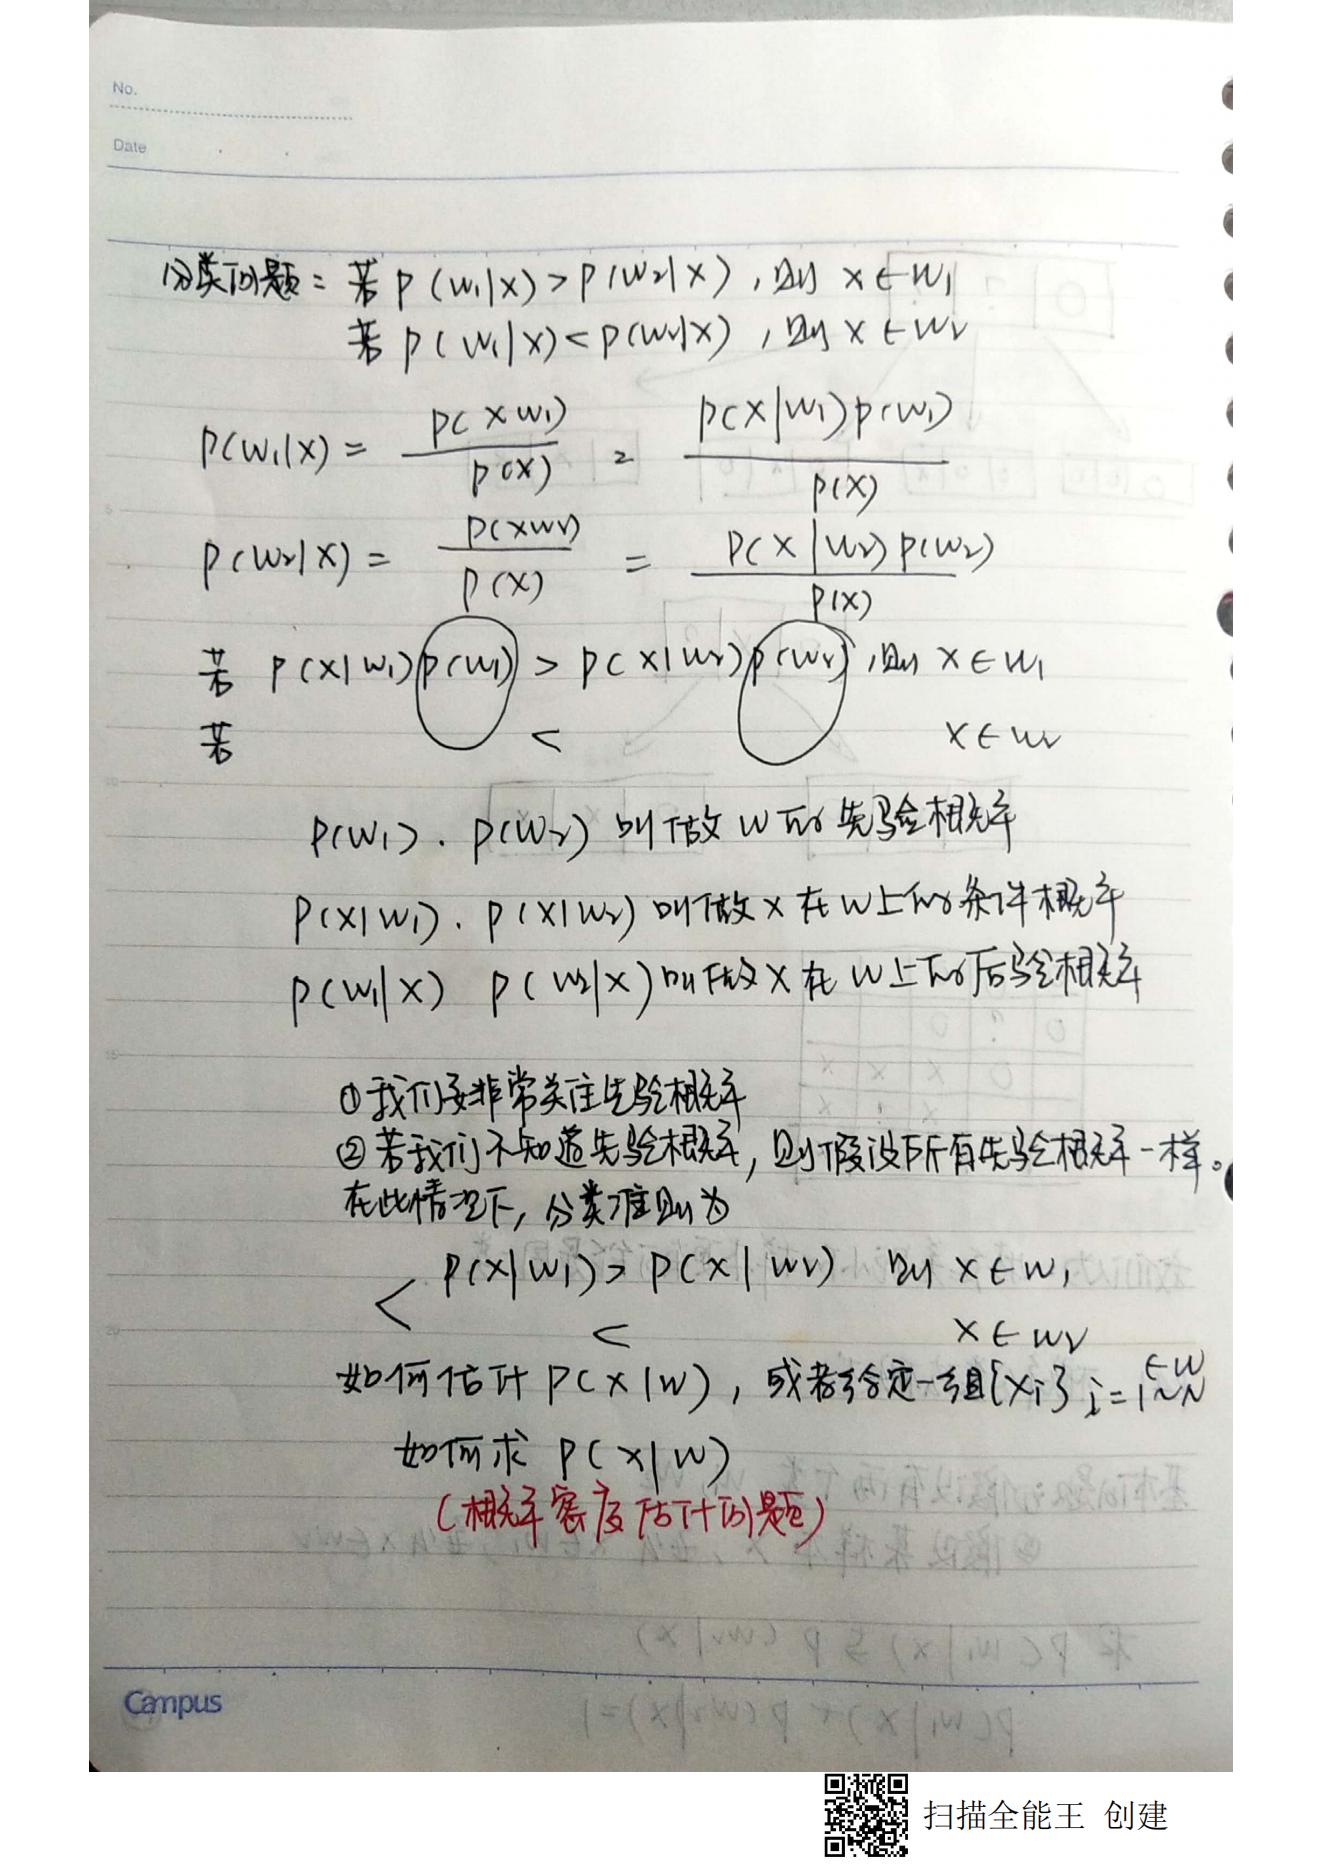 No.
Date
分类问题: 若 P(W₁|X)>P(W₂|X),则 X∈W₁
若 P(W₁|X)<P(W₂|X),则 X∈W₂
P(W₁|X) = P(XW₁)/P(X) = P(X|W₁)P(W₁)/P(X)
P(W₂|X) = P(XW₂)/P(X) = P(X|W₂)P(W₂)/P(X)
若 P(X|W₁)P(W₁) > P(X|W₂)P(W₂),则 X∈W₁
若 < X∈W₂
P(W₁). P(W₂) 叫做W的先验概率
P(X|W₁). P(X|W₂) 叫做X在W上的条件概率
P(W₁|X) P(W₂|X) 叫做X在W上的后验概率
①我们要非常关注先验概率
②若我们不知道先验概率,则假设所有先验概率一样。
在此情况下,分类准则为
< P(X|W₁)> P(X|W₂) 则 X∈W₁
< X∈W₂
如何估计 P(X|W), 或者给定一组{Xi} i=1~N ∈W
如何求 P(X|W)
(概率密度估计问题)
Campus
扫描全能王 创建